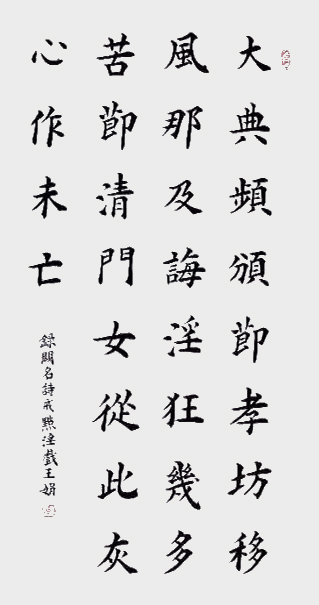 大典頻頒節孝坊移
風那及誨淫狂幾多
苦節清門女從此灰
心作未亡
錄闕名詩戒點淫戲王娟